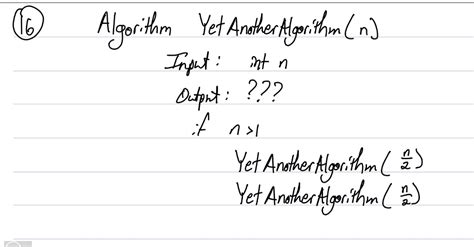 16 Algorithm YetAnotherAlgorithm(n)
Input: int n
Output: ???
if n>1
YetAnotherAlgorithm(n/2)
YetAnotherAlgorithm(n/2)